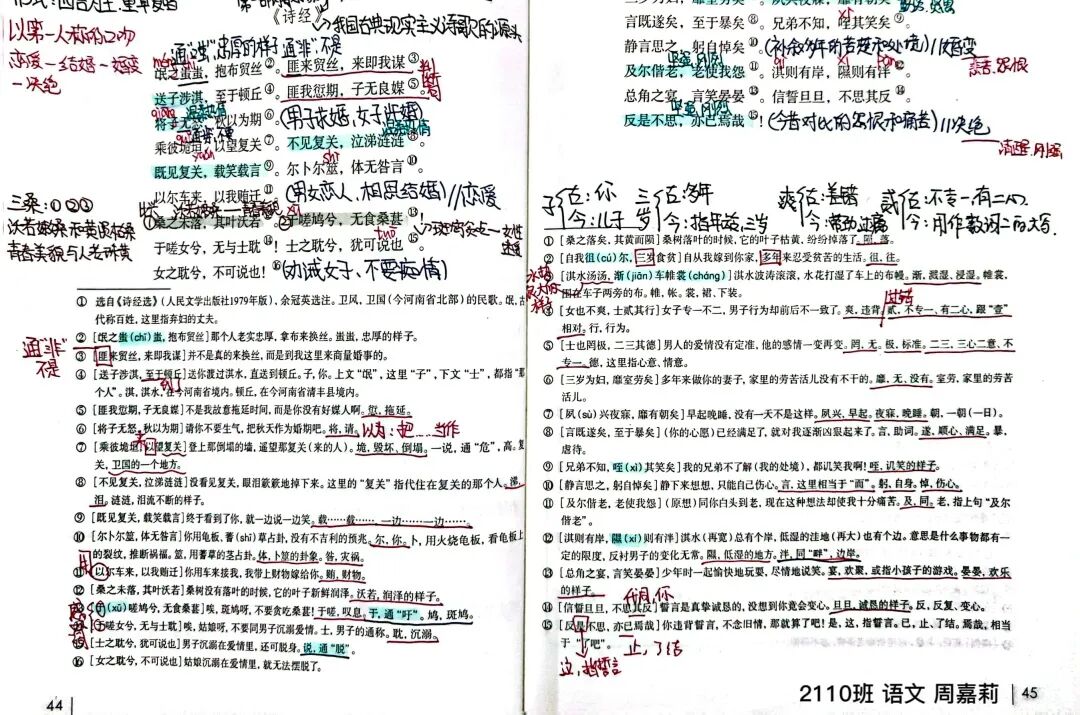 以第一人称的口吻
恋爱—结婚—婚变
—决绝
《诗经》
我国古典现实主义诗歌的源头
氓之蚩蚩,抱布贸丝②。匪来贸丝,来即我谋③
送子涉淇,至于顿丘④。匪我愆期,子无良媒⑤。
秋以为期⑥。(男子求婚,女子许婚)
乘彼垝垣,以望复关⑦。不见复关,泣涕涟涟⑧。
既见复关,载笑载言⑨。尔卜尔筮,体无咎言⑩。
以尔车来,以我贿迁⑪。(男女恋人、相思结婚)//恋爱
桑之未落,其叶沃若⑫。于嗟鸠兮,无食桑葚⑬!
于嗟女兮,无与士耽⑭!士之耽兮,犹可说也⑮
女之耽兮,不可说也⑯!(劝诫女子、不要痴情)
① 选自《诗经选》(人民文学出版社1979年版),余冠英选注。卫风,卫国(今河南省北部)的民歌。氓,古
代称百姓,这里指弃妇的丈夫。
② [氓之蚩(chī)蚩,抱布贸丝]那个人老实忠厚,拿布来换丝。蚩蚩,忠厚的样子。
通“非”
不是
③ [匪来贸丝,来即我谋]并不是真的来换丝,而是到我这里来商量婚事的。
④ [送子涉淇,至于顿丘]送你渡过淇水,直送到顿丘。子,你。上文“氓”,这里“子”,下文“士”,都指“那
个人”。淇,淇水,在今河南省境内。顿丘,在今河南省清丰县境内。
⑤ [匪我愆期,子无良媒]不是我故意拖延时间,而是你没有好媒人啊。愆,拖延。
⑥ [将子无怒,秋以为期]请你不要生气,把秋天作为婚期吧。将,请。以为:把……当作
⑦ [乘彼垝垣,以望复关]登上那倒塌的墙,遥望那复关(来的人)。垝,毁坏、倒塌。一说,通“危”,高。复
关,卫国的一个地方。
⑧ [不见复关,泣涕涟涟]没看见复关,眼泪簌簌地掉下来。这里的“复关”指代住在复关的那个人。涕,
泪。涟涟,泪流不断的样子。
⑨ [既见复关,载笑载言]终于看到了你,就一边说一边笑。载……载……,一边……一边……。
⑩ [尔卜尔筮,体无咎言]你用龟板、蓍(shī)草占卦,没有不吉利的预兆。尔,你。卜,用火烧龟板,看龟板上
的裂纹,推断祸福。筮,用蓍草的茎占卦。体,卜筮的卦象。咎,灾祸。
⑪ [以尔车来,以我贿迁]你用车来接我,我带上财物嫁给你。贿,财物。
⑫ [桑之未落,其叶沃若]桑树没有落叶的时候,它的叶子新鲜润泽。沃若,润泽的样子。
⑬ [于(xū)嗟鸠兮,无食桑葚]唉,斑鸠呀,不要贪吃桑葚!于嗟,叹息。于,通“吁”。鸠,斑鸠。
⑭ [于嗟女兮,无与士耽]唉,姑娘呀,不要同男子沉溺爱情。士,男子的通称。耽,沉溺。
⑮ [士之耽兮,犹可说也]男子沉溺在爱情里,还可脱身。说,通“脱”。
⑯ [女之耽兮,不可说也]姑娘沉溺在爱情里,就无法摆脱了。
44
言既遂矣,至于暴矣⑧。兄弟不知,咥其笑矣⑨。
静言思之,躬自悼矣⑩。
及尔偕老,老使我怨⑪。淇则有岸,隰则有泮⑫。
总角之宴,言笑晏晏⑬。信誓旦旦,不思其反⑭。
反是不思,亦已焉哉⑮!(今昔对比的怨恨和痛苦)//决绝
子 古:你 今:儿子
三岁 古:多年 今:指年龄,三岁
爽 古:差错
贰 古:不专一,有二心 今:用作数词二的大写
① [桑之落矣,其黄而陨]桑树落叶的时候,它的叶子枯黄,纷纷掉落了。陨,落。
② [自我徂(cú)尔,三岁食贫]自从我嫁到你家,多年来忍受贫苦的生活。徂,往。
③ [淇水汤汤,渐(jiān)车帷裳(cháng)]淇水波涛滚滚,水花打湿了车上的布幔。渐,溅湿、浸湿。帷裳,
围在车子两旁的布。帷,帐。裳,裙、下装。
④ [女也不爽,士贰其行]女子专一不二,男子行为却前后不一致了。爽,违背。贰,不专一、有二心,跟“壹”
相对。行,行为。
⑤ [士也罔极,二三其德]男人的爱情没有定准,他的感情一变再变。罔,无。极,标准。二三,三心二意、不
专一。德,这里指心意、情意。
⑥ [三岁为妇,靡室劳矣]多年来做你的妻子,家里的劳苦活儿没有不干的。靡,无、没有。室劳,家里的劳苦
活儿。
⑦ [夙(sù)兴夜寐,靡有朝矣]早起晚睡,没有一天不是这样。夙兴,早起。夜寐,晚睡。朝,一朝(一日)。
⑧ [言既遂矣,至于暴矣](你的心愿)已经满足了,就对我逐渐凶狠起来了。言,助词。遂,顺心、满足。暴,
虐待。
⑨ [兄弟不知,咥(xì)其笑矣]我的兄弟不了解(我的处境),都讥笑我啊!咥,讥笑的样子。
⑩ [静言思之,躬自悼矣]静下来想想,只能自己伤心。言,这里相当于“而”。躬,自身。悼,伤心。
⑪ [及尔偕老,老使我怨](原想)同你白头到老,现在这种想法却使我十分痛苦。及,同。老,指上句“及尔
偕老”。
⑫ [淇则有岸,隰(xí)则有泮]淇水(再宽)总有个岸,低湿的洼地(再大)也有个边。意思是什么事物都有一
定的限度,反衬男子的变化无常。隰,低湿的地方。泮,同“畔”,边岸。
⑬ [总角之宴,言笑晏晏]少年时一起愉快地玩耍,尽情地说笑。宴,欢聚,或指小孩子的游戏。晏晏,欢乐
的样子。
⑭ [信誓旦旦,不思其反]誓言是真挚诚恳的,没想到你竟会变心。旦旦,诚恳的样子。反,反复、变心。
⑮ [反是不思,亦已焉哉]你违背誓言,不念旧情,那就算了吧!是,这,指誓言。已,止、了结。焉哉,相当
于“了吧”。
止,了结
这,指誓言
2110班 语文 周嘉莉
45